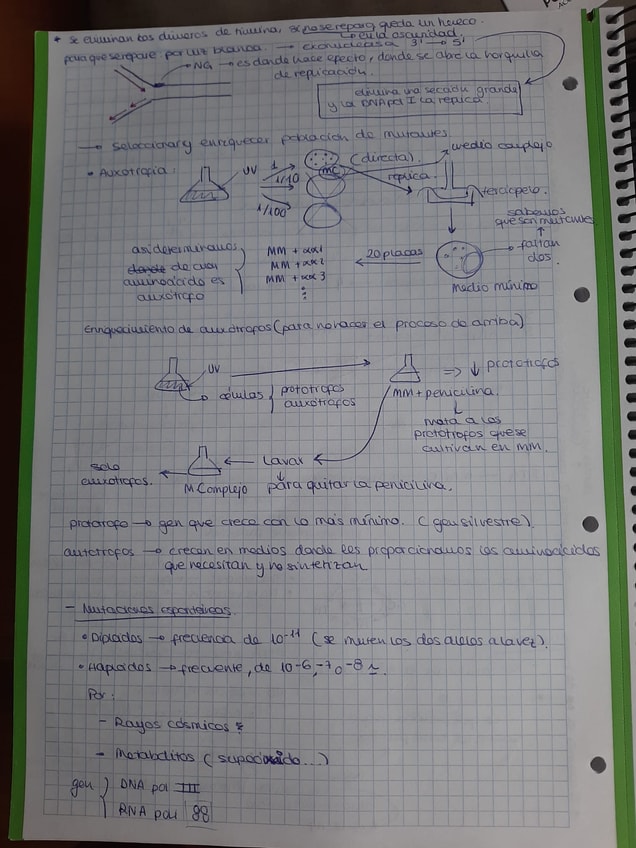 * Se eliminan los dímeros de timina, si no se repara queda un hueco.
en la oscuridad
para que se repare por luz blanca. → exonucleasa 3' → 5'
NG → es donde hace efecto, donde se abre la horquilla
de replicación.
elimina una sección grande
y la DNA pol I la replica.
→ Seleccionar y enriquecer población de mutantes.
• Auxotropia:
UV
1
1/10
1/100
mc
(directa)
réplica.
medio complejo
terciopelo.
sabemos
que son mutantes
faltan
dos.
medio mínimo
20 placas
MM + aa 1
MM + aa 2
MM + aa 3
así determinamos
donde de cual
aminoácido es
auxótrofo
Enriquecimiento de auxótropos (para no hacer el proceso de arriba)
UV
células
protótrofos
auxótrofos
MM + penicilina.
⇒ ↓ prototrofos
mata a los
protótrofos que se
cultivan en MM.
Lavar
para quitar la penicilina.
M Complejo
solo
auxótropos.
prototrofo → gen que crece con lo más mínimo. (gen silvestre).
autotrofos → crecen en medios donde les proporcionamos los aminoácidos
que necesitan y no sintetizan
- Mutaciones espontáneas.
• Diploides → frecuencia de 10⁻¹¹ (se muten los dos alelos a la vez).
• Haploides → frecuente, de 10⁻⁶, ⁻⁷ o ⁻⁸ ~.
Por:
- Rayos cósmicos
- Metabolitos (superóxido...)
gen
DNA pol III
RNA pol